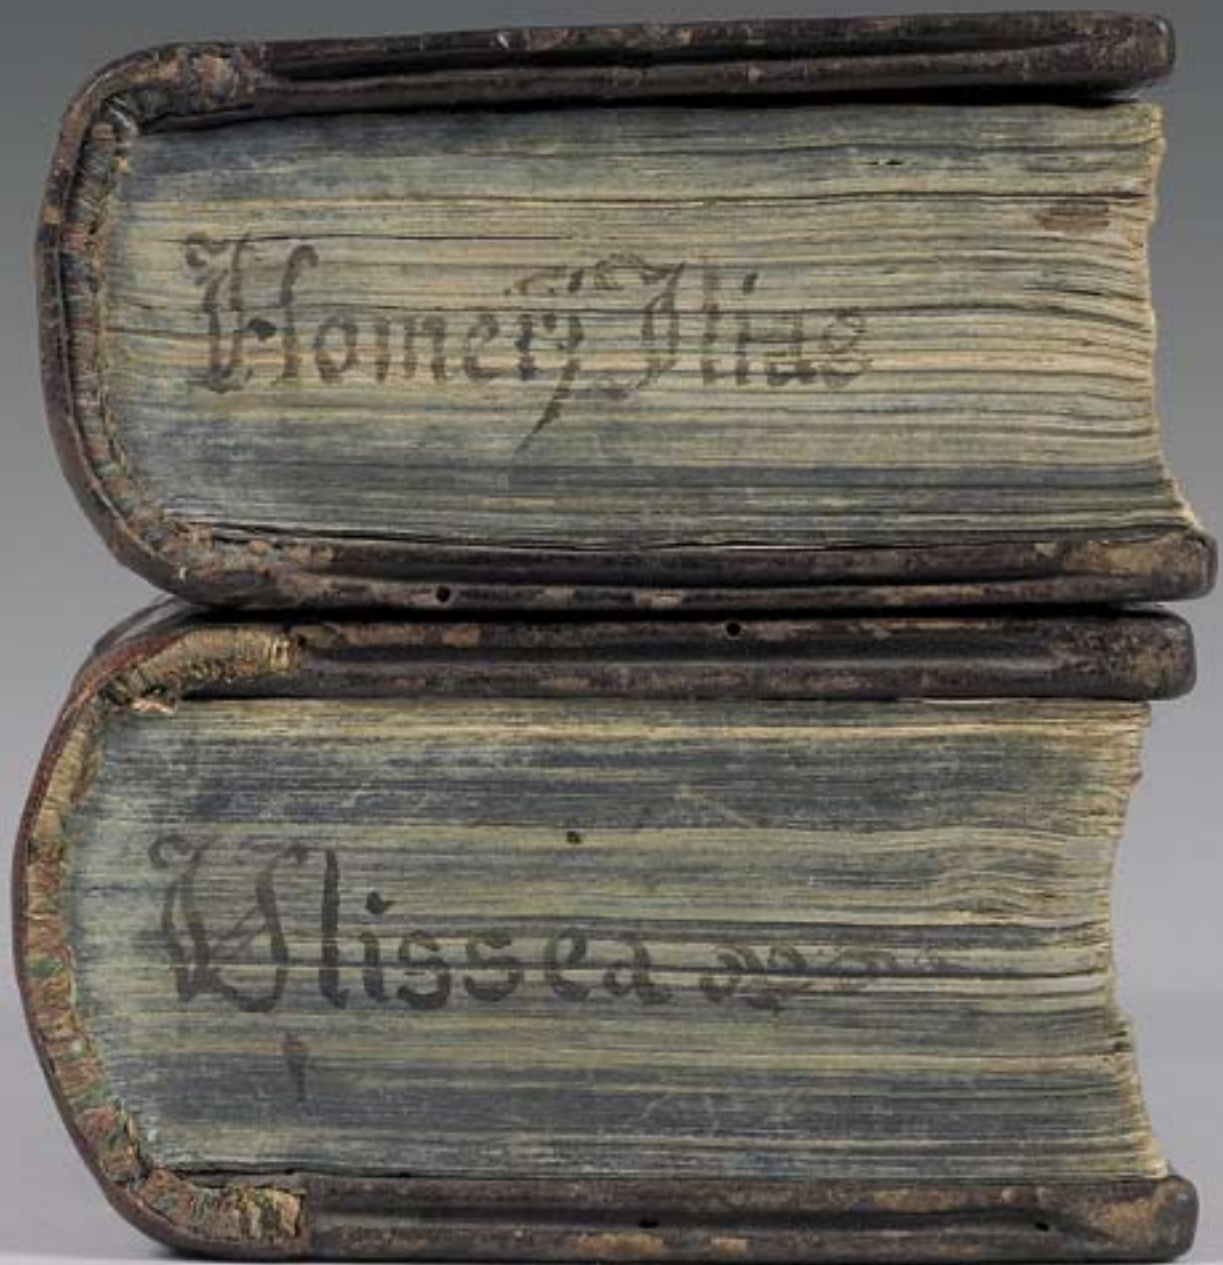 Homerij Ilias
Ulissea